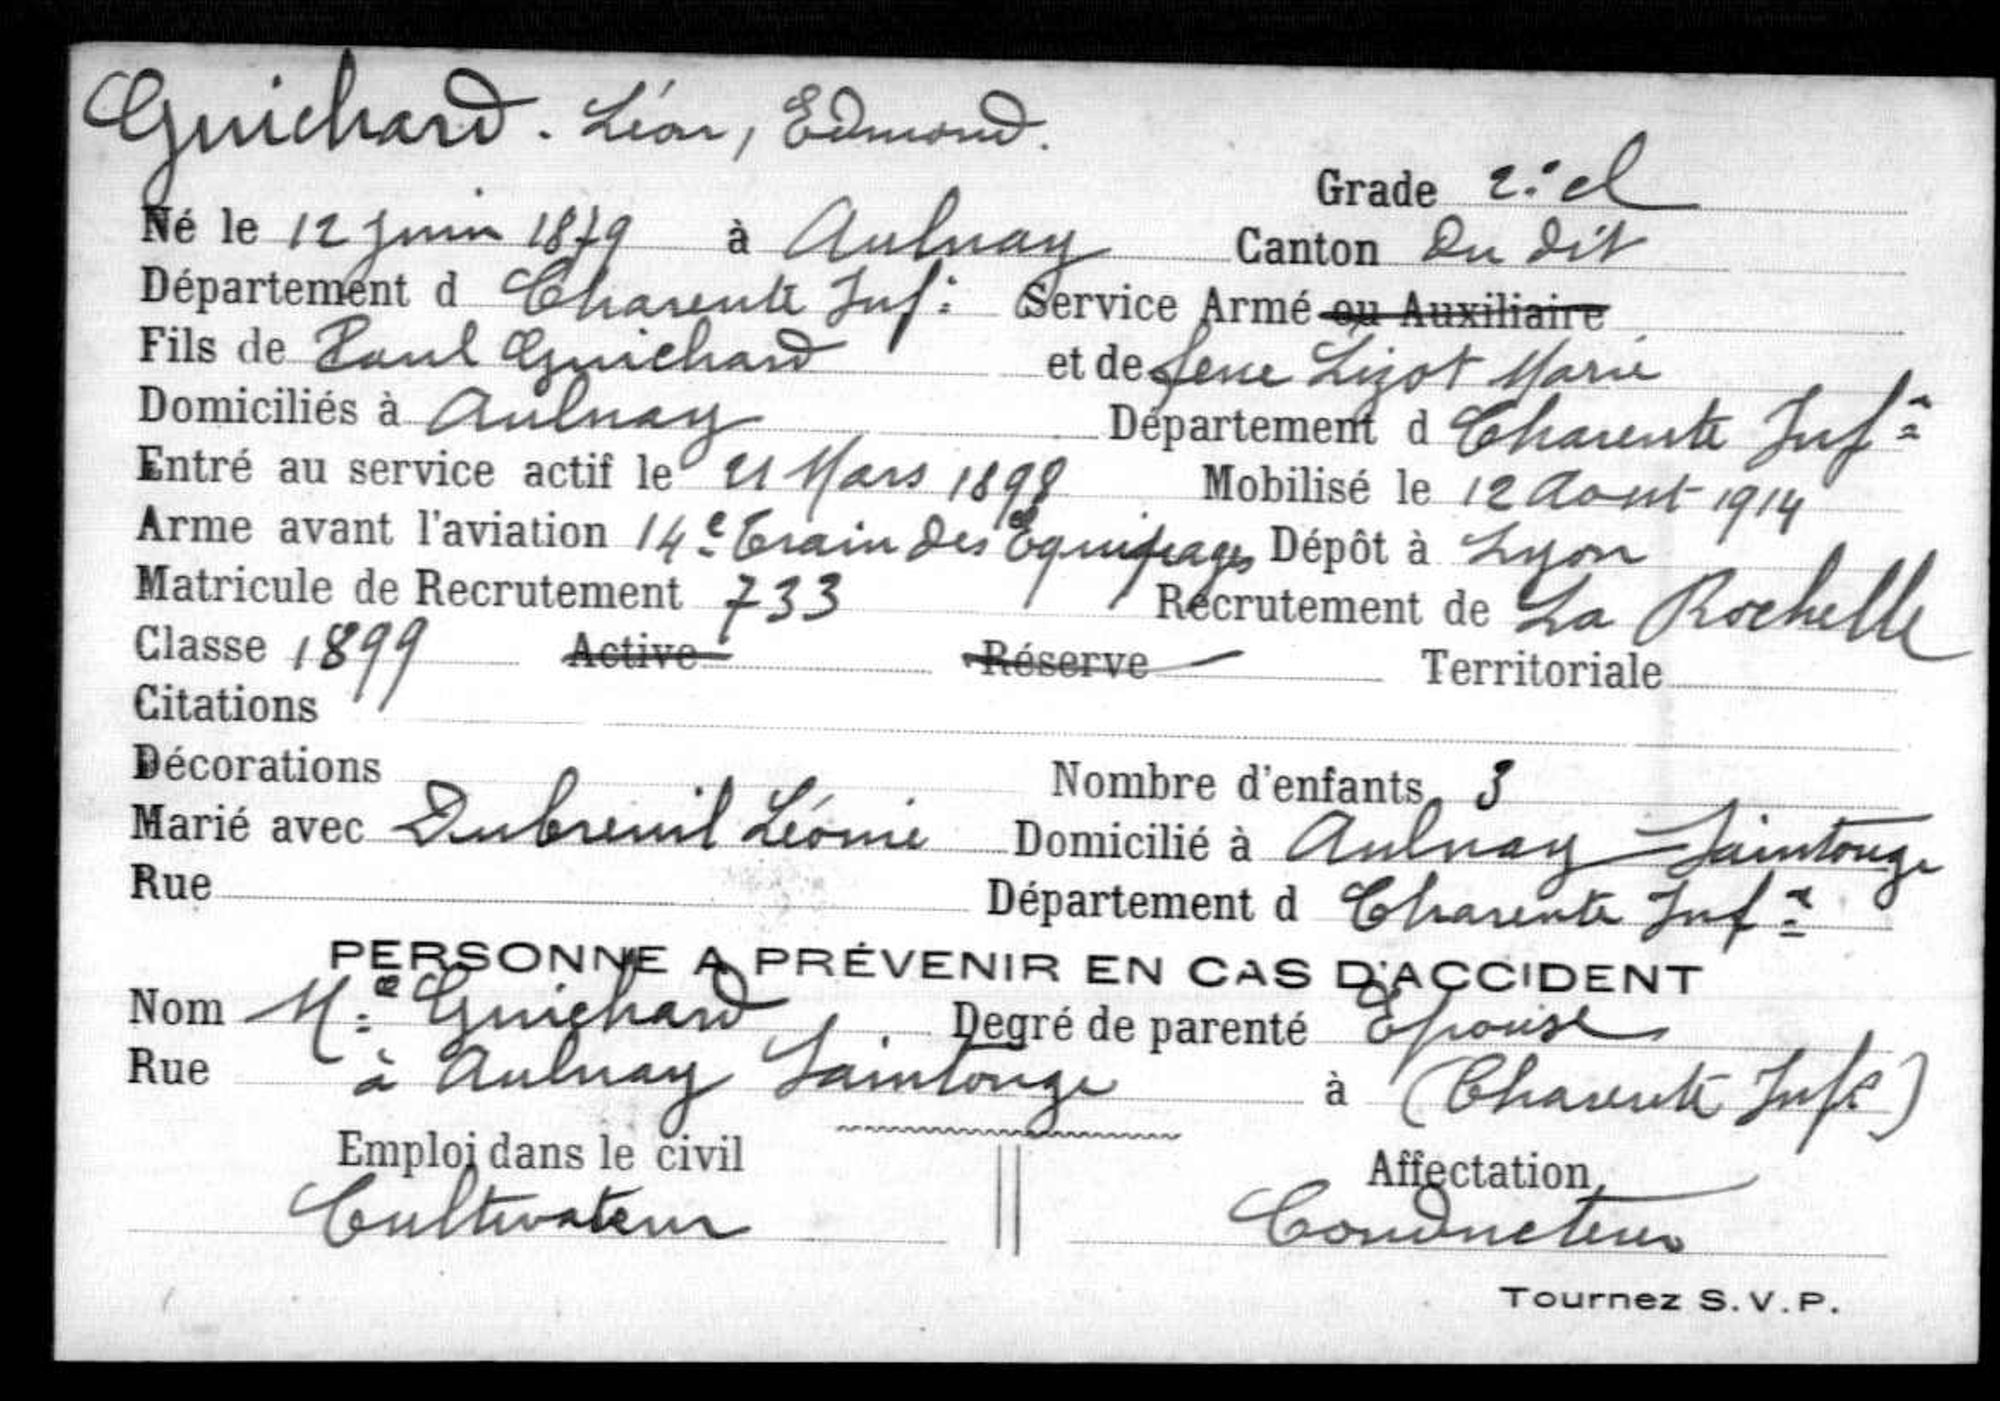 Guichard. Léon, Edmond.
Grade 2e cl
Né le 12 juin 1879 à Aulnay Canton du dit
Département d Charente Infre Service Armé ou Auxiliaire
Fils de Paul Guichard et de feue Lizot Marie
Domiciliés à Aulnay Département d Charente Infre
Entré au service actif le 21 Mars 1898 Mobilisé le 12 Aout 1914
Arme avant l'aviation 14e Train des Equipages Dépôt à Lyon
Matricule de Recrutement 733 Recrutement de La Rochelle
Classe 1899 Active Réserve Territoriale
Citations
Décorations Nombre d'enfants 3
Marié avec Dubreuil Léonie Domicilié à Aulnay - Saintonge
Rue Département d Charente Infre
PERSONNE A PRÉVENIR EN CAS D'ACCIDENT
Nom Me Guichard Degré de parenté Epouse
Rue à Aulnay Saintonge à (Charente Infre)
Emploi dans le civil Affectation
Cultivateur Conducteur
Tournez S.V.P.